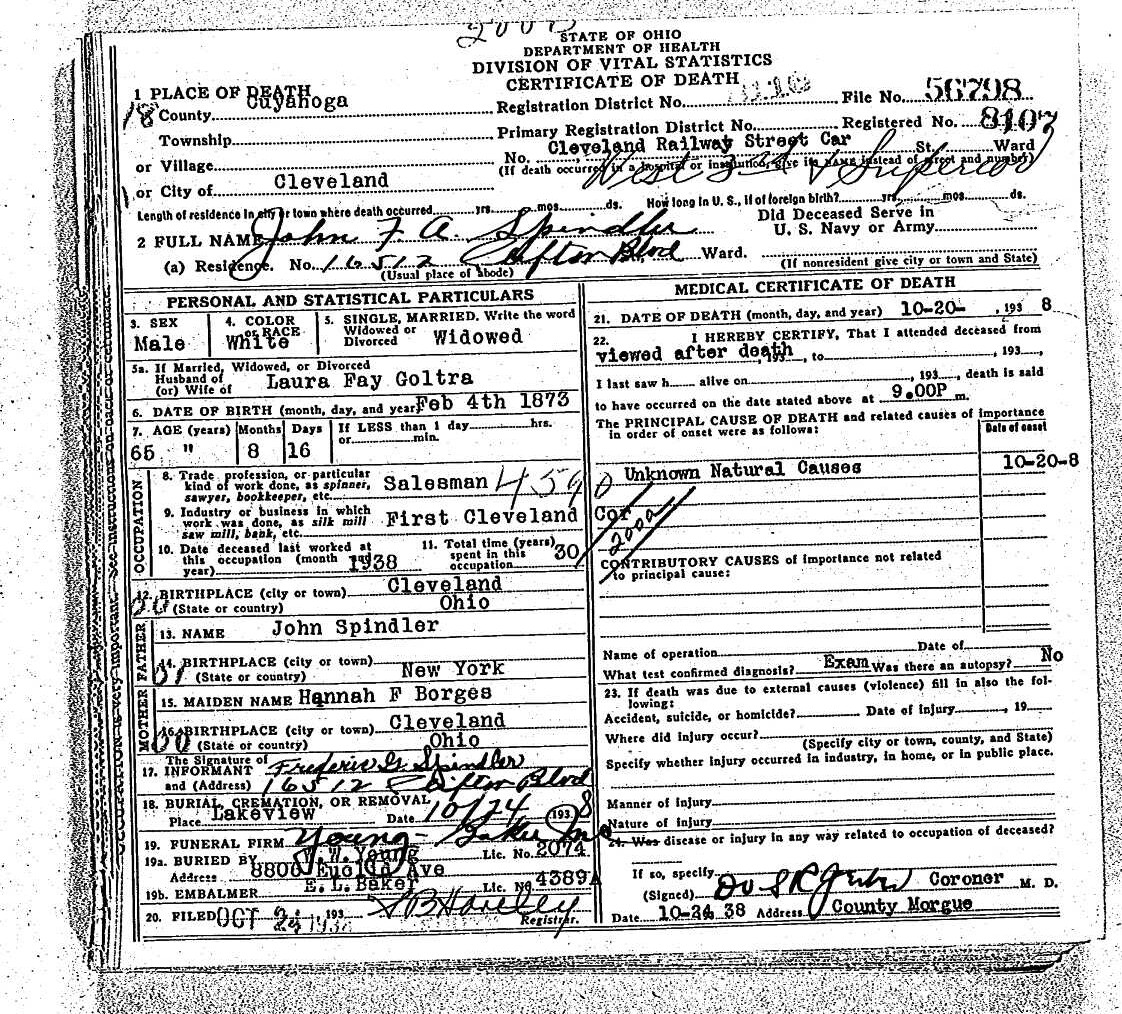 2000
STATE OF OHIO
DEPARTMENT OF HEALTH
DIVISION OF VITAL STATISTICS
CERTIFICATE OF DEATH
1 PLACE OF DEATH
18 County Cuyahoga
Registration District No. File No. 56798
Township
Primary Registration District No. Registered No. 8107
or Village
No. Cleveland Railway Street Car St. Ward
(If death occurred in a hospital or institution, give its NAME instead of street and number)
West 3rd & Superior
or City of Cleveland
Length of residence in city or town where death occurred yrs. mos. ds. How long in U. S., if of foreign birth? yrs. mos. ds.
2 FULL NAME John F. A. Spindler
Did Deceased Serve in
U. S. Navy or Army
(a) Residence. No. 16512 Clifton Blvd Ward.
(Usual place of abode) (If nonresident give city or town and State)
PERSONAL AND STATISTICAL PARTICULARS
3. SEX
Male
4. COLOR or RACE
White
5. SINGLE, MARRIED. Write the word
Widowed or
Divorced Widowed
5a. If Married, Widowed, or Divorced
Husband of
(or) Wife of Laura Fay Goltra
6. DATE OF BIRTH (month, day, and year) Feb 4th 1873
7. AGE (years) Months Days If LESS than 1 day hrs.
or min.
65 " 8 16
OCCUPATION
8. Trade, profession, or particular
kind of work done, as spinner,
sawyer, bookkeeper, etc. Salesman 4590
9. Industry or business in which
work was done, as silk mill
saw mill, bank, etc. First Cleveland Cor
10. Date deceased last worked at
this occupation (month and
year) 1938
11. Total time (years)
spent in this
occupation 30
12. BIRTHPLACE (city or town) Cleveland
(State or country) Ohio
FATHER
13. NAME John Spindler
14. BIRTHPLACE (city or town)
(State or country) New York
MOTHER
15. MAIDEN NAME Hannah F Borges
16. BIRTHPLACE (city or town) Cleveland
(State or country) Ohio
The Signature of
17. INFORMANT Frederic G. Spindler
and (Address) 16512 Clifton Blvd
18. BURIAL, CREMATION, OR REMOVAL
Place Lakeview Date 10/24 193 8
19. FUNERAL FIRM Young- Baker Inc
19a. BURIED BY W. W. Young Lic. No. 2074
Address 8808 Euclid Ave
19b. EMBALMER E. L. Baker Lic. No 4389A
20. FILED OCT 193 Registrar.
MEDICAL CERTIFICATE OF DEATH
21. DATE OF DEATH (month, day, and year) 10-20- , 193 8
22. I HEREBY CERTIFY, That I attended deceased from
viewed after death , 193 , to , 193 ,
I last saw h alive on , 193 , death is said
to have occurred on the date stated above at 9.00P m.
The PRINCIPAL CAUSE OF DEATH and related causes of importance
in order of onset were as follows:
Date of onset
Unknown Natural Causes 10-20-8
200a
CONTRIBUTORY CAUSES of importance not related
to principal cause:
Name of operation Date of
What test confirmed diagnosis? Exam Was there an autopsy? No
23. If death was due to external causes (violence) fill in also the fol-
lowing:
Accident, suicide, or homicide? Date of injury , 19
Where did injury occur?
(Specify city or town, county, and State)
Specify whether injury occurred in industry, in home, or in public place.
Manner of Injury
Nature of injury
24. Was disease or injury in any way related to occupation of deceased?
If so, specify
(Signed) Coroner M. D.
Date 10-24 38 Address County Morgue